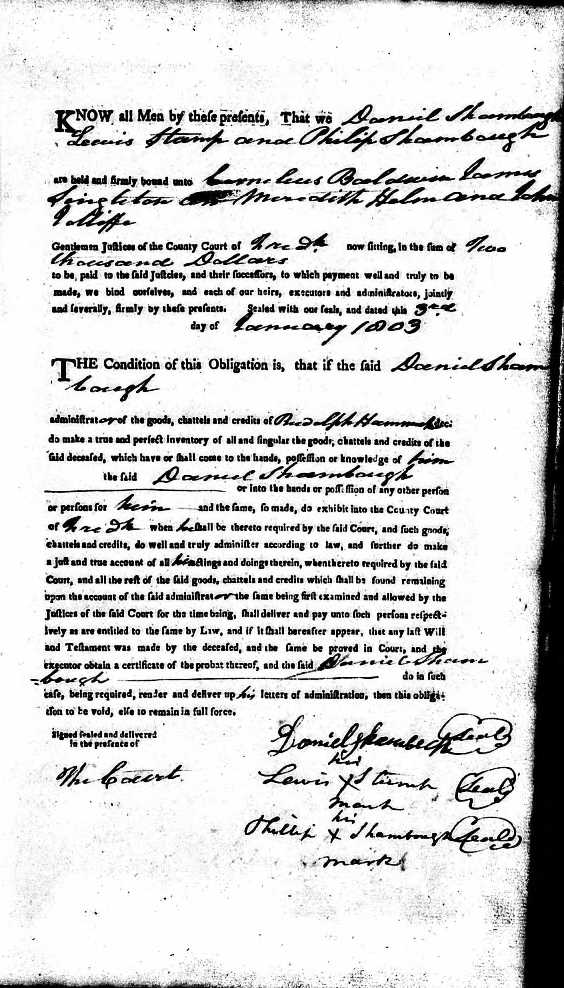 KNOW all Men by these presents, That we Daniel Shambaugh
Lewis Stump and Philip Shambaugh
are held and firmly bound unto Cornelius Baldwin James
Singleton Meredith Helm and John
Jolliffe
Gentlemen Justices of the County Court of Fredk now sitting, in the sum of Two
thousand Dollars
to be, paid to the said Justcies, and their successors, to which payment well and truly to be
made, we bind ourselves, and each of our heirs, executors and administrators, jointly
and severally, firmly by these presents. Sealed with our seals, and dated this 3rd
day of January 1803
THE Condition of this Obligation is, that if the said Daniel Sham
baugh
administrator of the goods, chattels and credits of Rudolph Hammock dec:
do make a true and perfect inventory of all and singular the goods, chattels and credits of the
said deceased, which have or shall come to the hands, possession or knowledge of him
the said Daniel Shambaugh
or into the hands or possession of any other person
or persons for him and the same, so made, do exhibit into the County Court
of Fredk when he shall be thereto required by the said Court, and such goods,
chattels and credits, do well and truly administer according to law, and further do make
a just and true account of all his actings and doings therein, when thereto required by the said
Court, and all the rest of the said goods, chattels and credits which shall be found remaining
upon the account of the said administrator the same being first examined and allowed by the
Justices of the said Court for the time being, shall deliver and pay unto such persons respect-
ively as are entitled to the same by Law, and if it shall hereafter appear, that any last Will
and Testament was made by the deceased, and the same be proved in Court, and the
executor obtain a certificate of the probat thereof, and the said Daniel Sham
=baugh do in such
case, being required, render and deliver up his letters of administration, then this obliga-
tion to be void, else to remain in full force.
Signed sealed and delivered
in the presence of
The Court.
Daniel Shambaugh (Seal)
his
Lewis X Stump (Seal)
mark
his
Phillip X Shambaugh (Seal)
mark